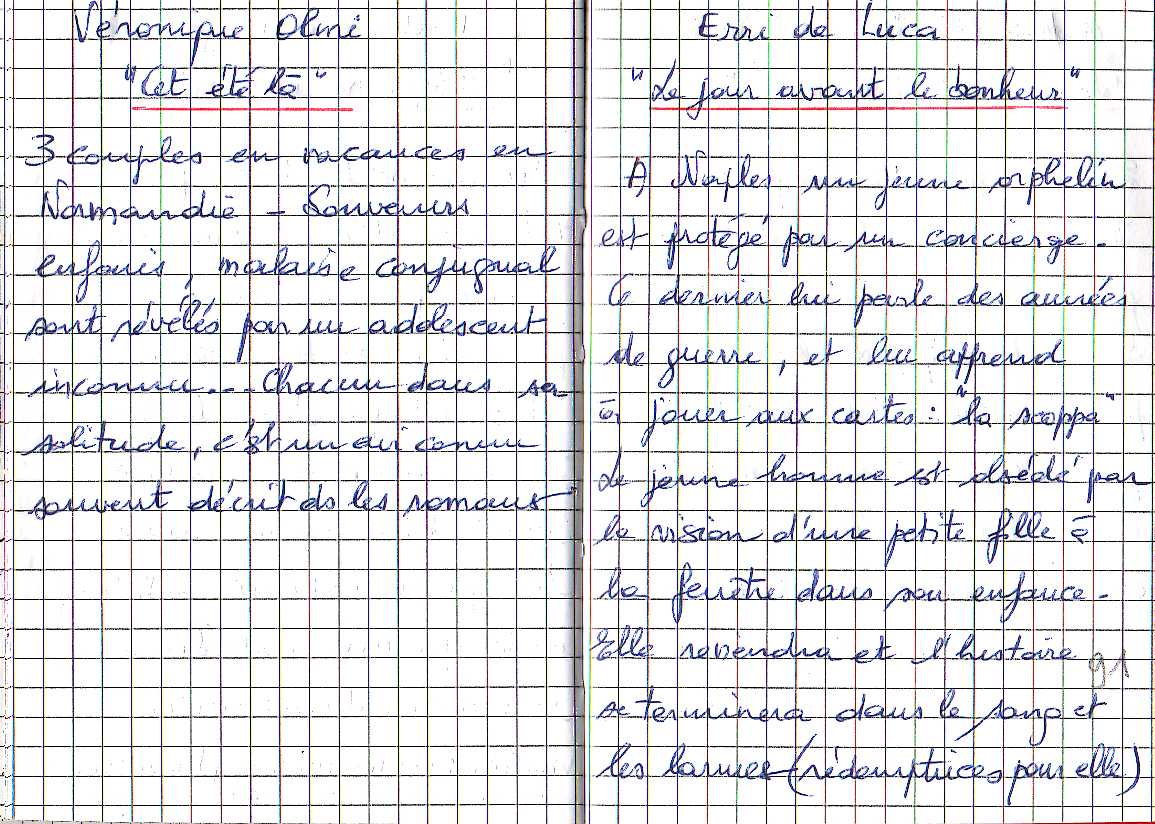 Véronique Olmi
"Cet été là"
3 couples en vacances en
Normandie - Souvenirs
enfouis, malaise conjugual
sont révélés par un adolescent
inconnu... Chacun dans sa
solitude, c'est un avi connu
souvent décrit ds les romans
Erri de Luca
"Le jour avant le bonheur"
A Naples un jeune orphelin
est protégé par un concierge.
Ce dernier lui parle des années
de guerre, et lui apprend
à jouer aux cartes : "la scoppa"
Le jeune homme est obsédé par
la vision d'une petite fille à
la fenêtre dans son enfance.
Elle reviendra et l'histoire
se terminera dans le sang et
les larmes (rédemptrices pour elle)
91